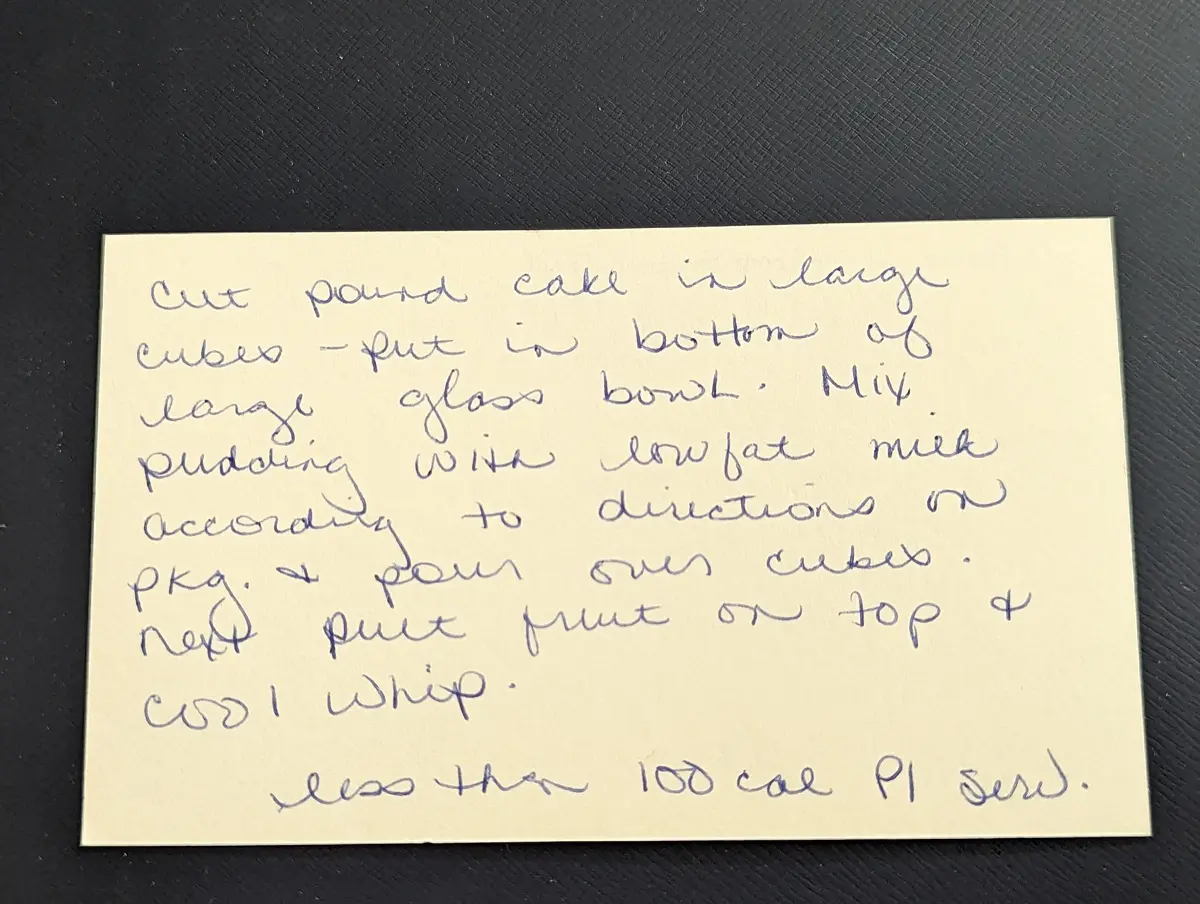 Cut pound cake in large
cubes - put in bottom of
large glass bowl. Mix
pudding with lowfat milk
according to directions on
pkg. & pour over cubes.
Next put fruit on top &
cool whip.
less than 100 cal P/ serv.